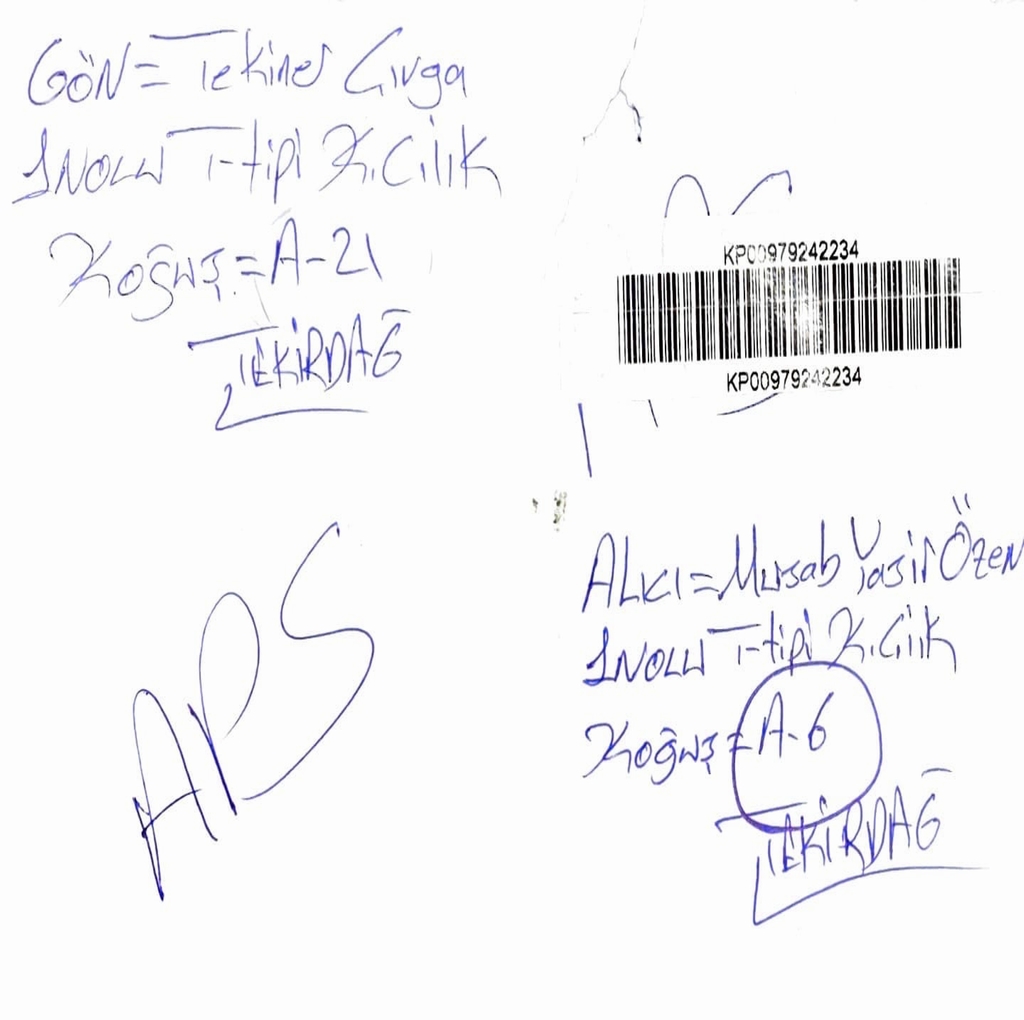 GÖN=Tekiner Çıvga
1NOLU T-tipi K.CiliK
Koğuş=A-21
TEKİRDAĞ
KP00979242234
KP00979242234
APS
ALıcı=Musab Yasir Özen
1NOLU T-tipi K.Cilik
Koğuş=A-6
TEKİRDAĞ